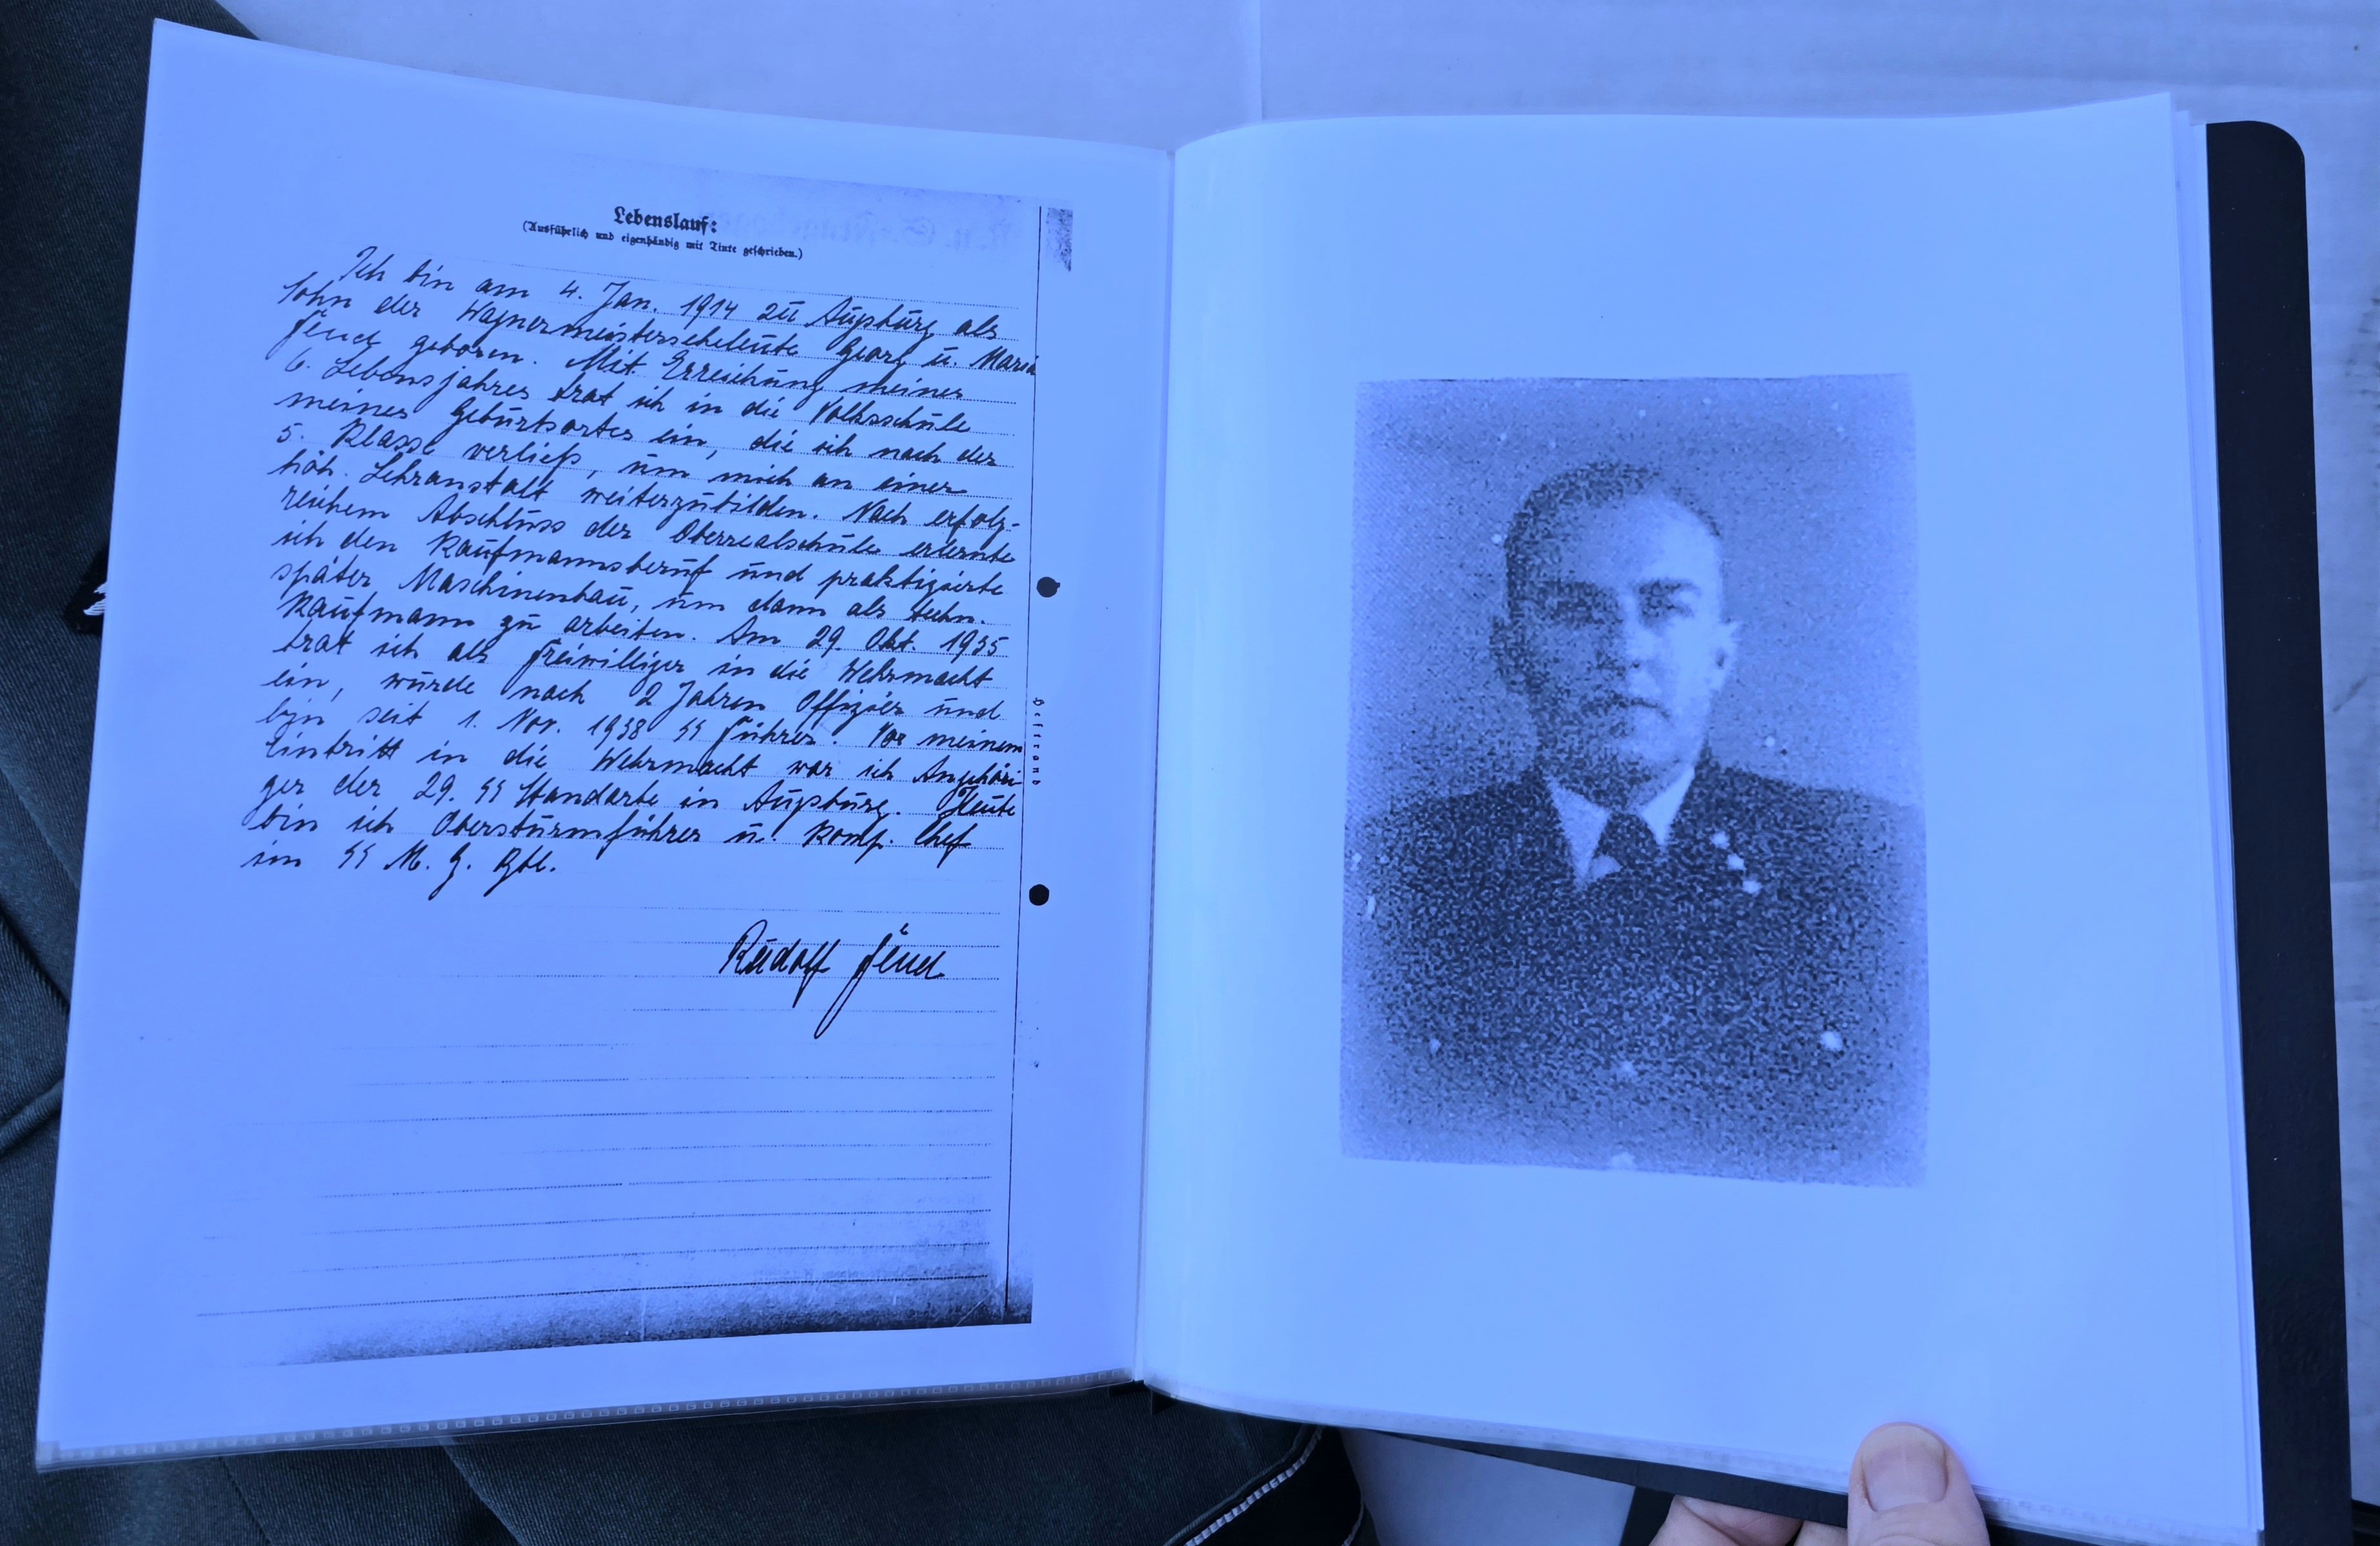 Lebenslauf:
(Ausführlich und eigenhändig mit Tinte geschrieben.)
Ich bin am 4. Jan. 1914 zu Augsburg als
Sohn der Wagnermeisterseheleute Georg u. Maria
geboren. Mit Erreichung meines
6. Lebensjahres trat ich in die Volksschule
meines Geburtsortes ein, die ich nach der
5. Klasse verließ, um mich an einer
höh. Lehranstalt weiterzubilden. Nach erfolg-
reichem Abschluss der Oberrealschule erlernte
ich den Kaufmannsberuf und praktizierte
später Maschinenbau, um dann als techn.
Kaufmann zu arbeiten. Am 29. Okt. 1935
trat ich als Freiwilliger in die Wehrmacht
ein, wurde nach 2 Jahren Offizier und
bin seit 1. Nov. 1938 SS Führer. Vor meinem
Eintritt in die Wehrmacht war ich Angehöri-
ger der 29. SS Standarte in Augsburg. Heute
bin ich Obersturmführer u. Komp. Chef
im SS M. G. Btl.
Rudolf
Heftrand